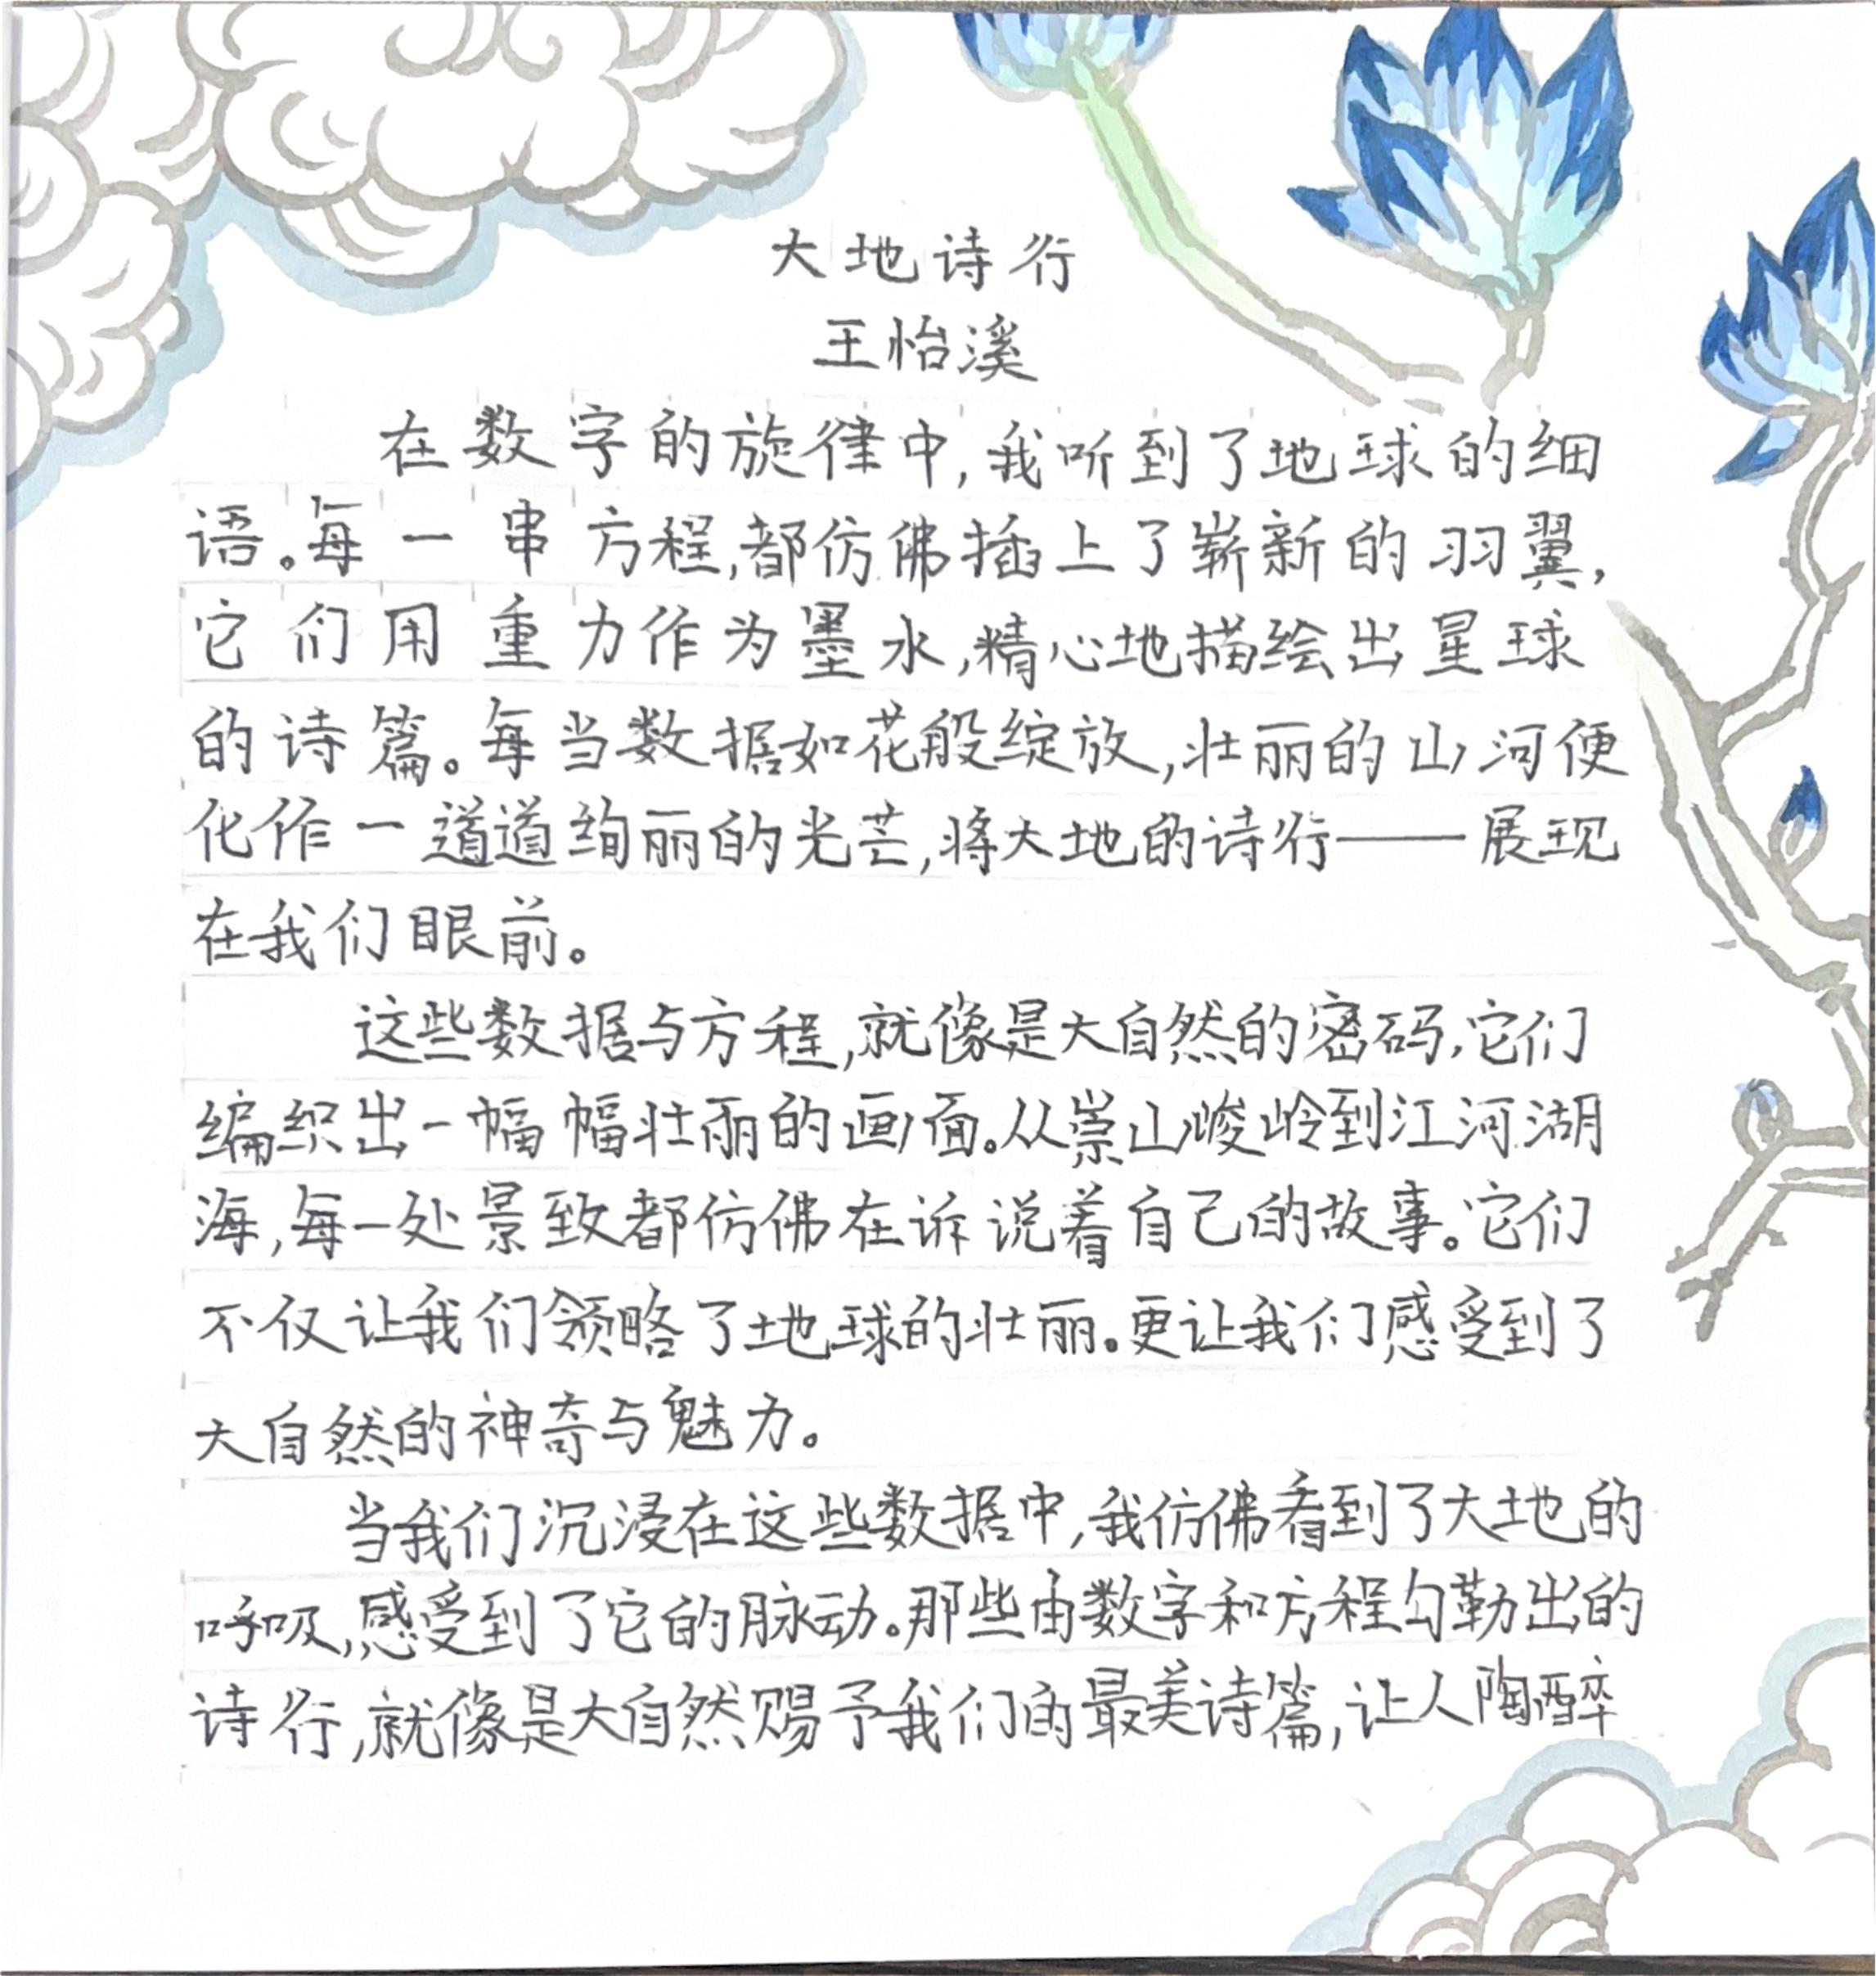 大地诗行
王怡溪
在数字的旋律中,我听到了地球的细
语。每一串方程,都仿佛插上了崭新的羽翼,
它们用重力作为墨水,精心地描绘出星球
的诗篇。每当数据如花般绽放,壮丽的山河便
化作一道道绚丽的光芒,将大地的诗行——展现
在我们眼前。
这些数据与方程,就像是大自然的密码,它们
编织出一幅幅壮丽的画面。从崇山峻岭到江河湖
海,每一处景致都仿佛在诉说着自己的故事。它们
不仅让我们领略了地球的壮丽。更让我们感受到了
大自然的神奇与魅力。
当我们沉浸在这些数据中,我仿佛看到了大地的
呼吸,感受到了它的脉动。那些由数字和方程勾勒出的
诗行,就像是大自然赐予我们的最美诗篇,让人陶醉